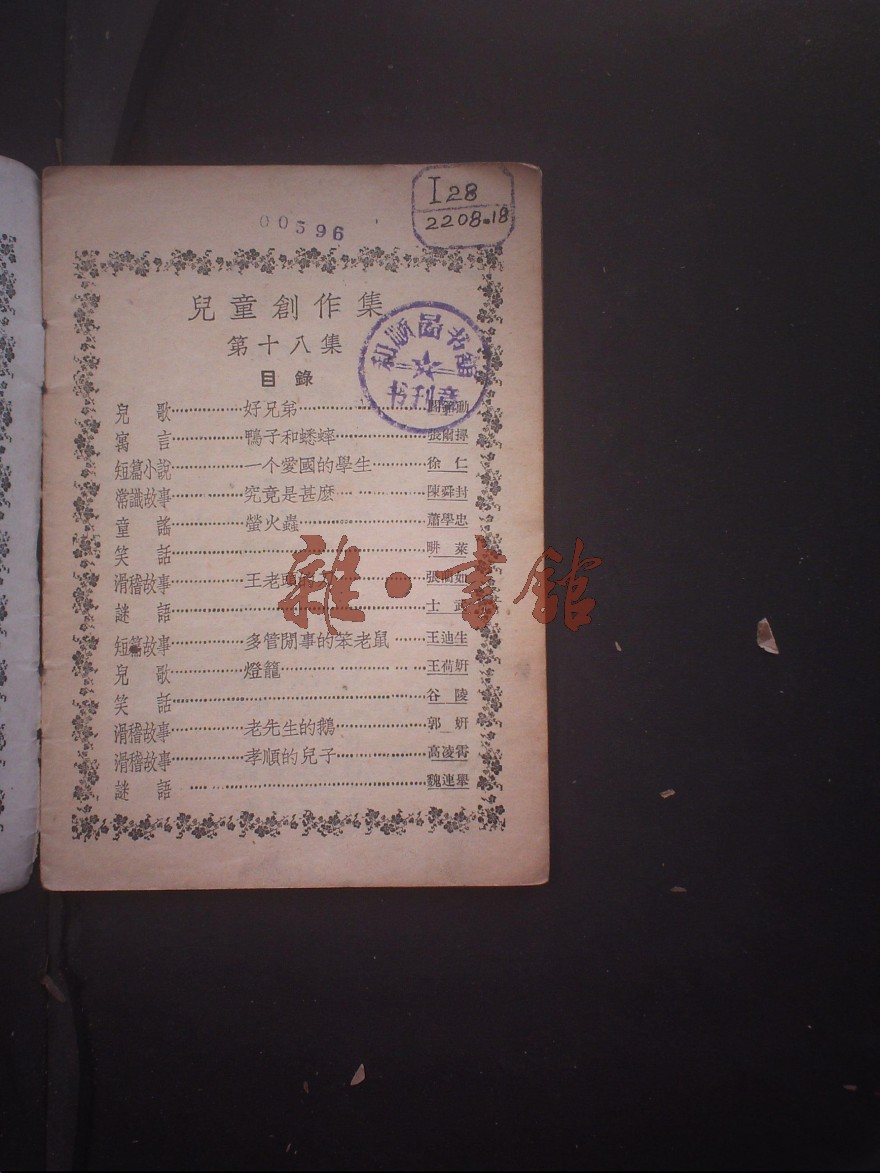 I28
2208.18
00596
兒童創作集
第十八集
目錄
和順圖书館
书刊章
兒歌 好兄弟
寓言 鴨子和蟋蟀 張爾摶
短篇小說 一个愛國的學生 徐仁
常識故事 究竟是甚麽 陳舜封
童謠 螢火蟲 蕭學忠
笑話 畊萊
滑稽故事 王老頭 張蘭如
謎語 士武
短篇故事 多管閒事的笨老鼠 王迪生
兒歌 燈籠 王荷妍
笑話 谷陵
滑稽故事 老先生的鵝 郭妍
滑稽故事 孝順的兒子 高凌霄
謎語 魏連舉
雜·書館